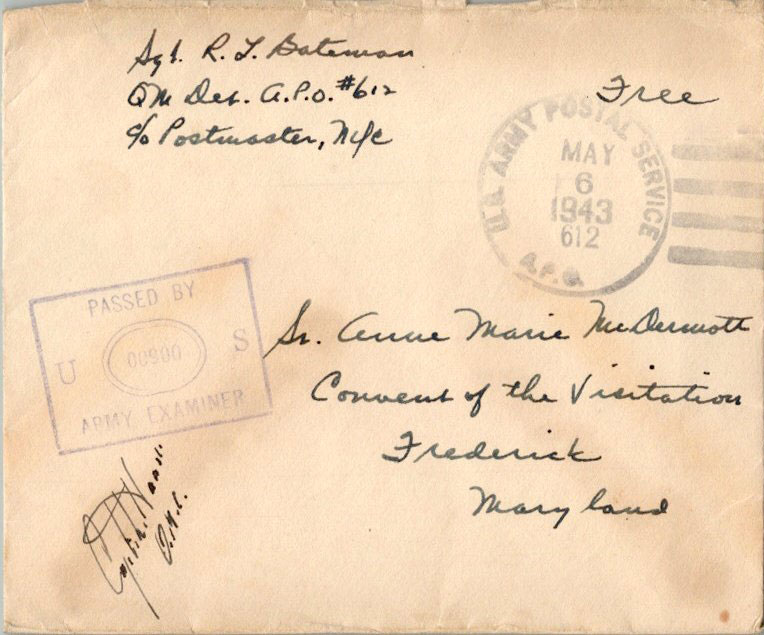 Sgt. R. T. Bateman
QM Det. A.P.O. #612
c/o Postmaster, NYC
Free
U.S. ARMY POSTAL SERVICE
MAY
6
1943
612
A.P.O.
PASSED BY
U 00900 S
ARMY EXAMINER
Sr. Anne Marie McDermott
Convent of the Visitation
Frederick
Maryland